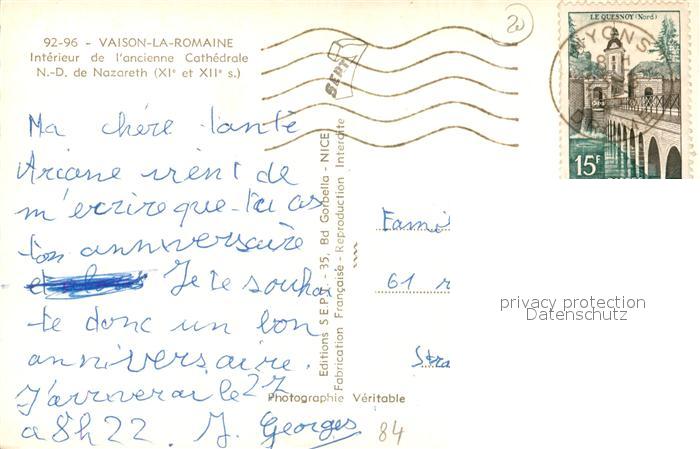 92-96 - VAISON-LA-ROMAINE
Intérieur de l'ancienne Cathédrale
N.-D. de Nazareth (XIe et XIIe s.)
20
SEPT
LE QUESNOY (Nord)
NYONS
8 H
15F
Ma chère tante
Ariane vient de
m'ecrire que tu as
ton anniversaire
Je te souhai
te donc un bon
anniversaire.
J'arriverai le 27
a 8h22. J. Georges
84
Editions S.E.P.T. - 35, Bd Gorbella - NICE
Fabrication Française - Reproduction Interdite
Photographie Véritable
Fami
61 r
Stra
privacy protection
Datenschutz